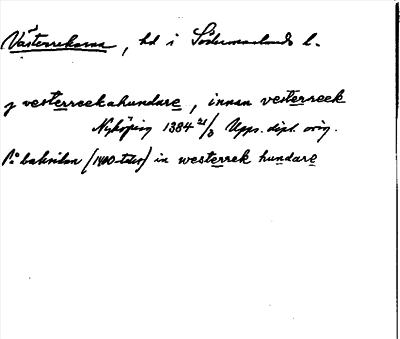 Västerrekarne, hd i Södermanlands l.
j vesterreekahundare, innan vesterreek
Nyköping 1384 21/3 Upps. dipl. orig.
På baksidan (1400-talet) in westerrek hundare